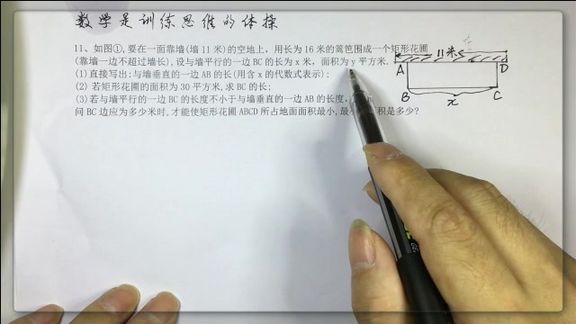 数学是训练思维的体操
11、如图①,要在一面靠墙(墙 11 米)的空地上，用长为 16 米的篱笆围成一个矩形花圃
(靠墙一边不超过墙长),设与墙平行的一边 BC 的长为 x 米，面积为 y 平方米.
(1)直接写出:与墙垂直的一边 AB 的长(用含 x 的代数式表示);
(2) 若矩形花圃的面积为 30 平方米,求 BC 的长;
(3)若与墙平行的一边 BC 的长度不小于与墙垂直的一边 AB 的长度，
问 BC 边应为多少米时,才能使矩形花圃 ABCD 所占地面面积最小,最小 积是多少?
11米
A D
B C
x